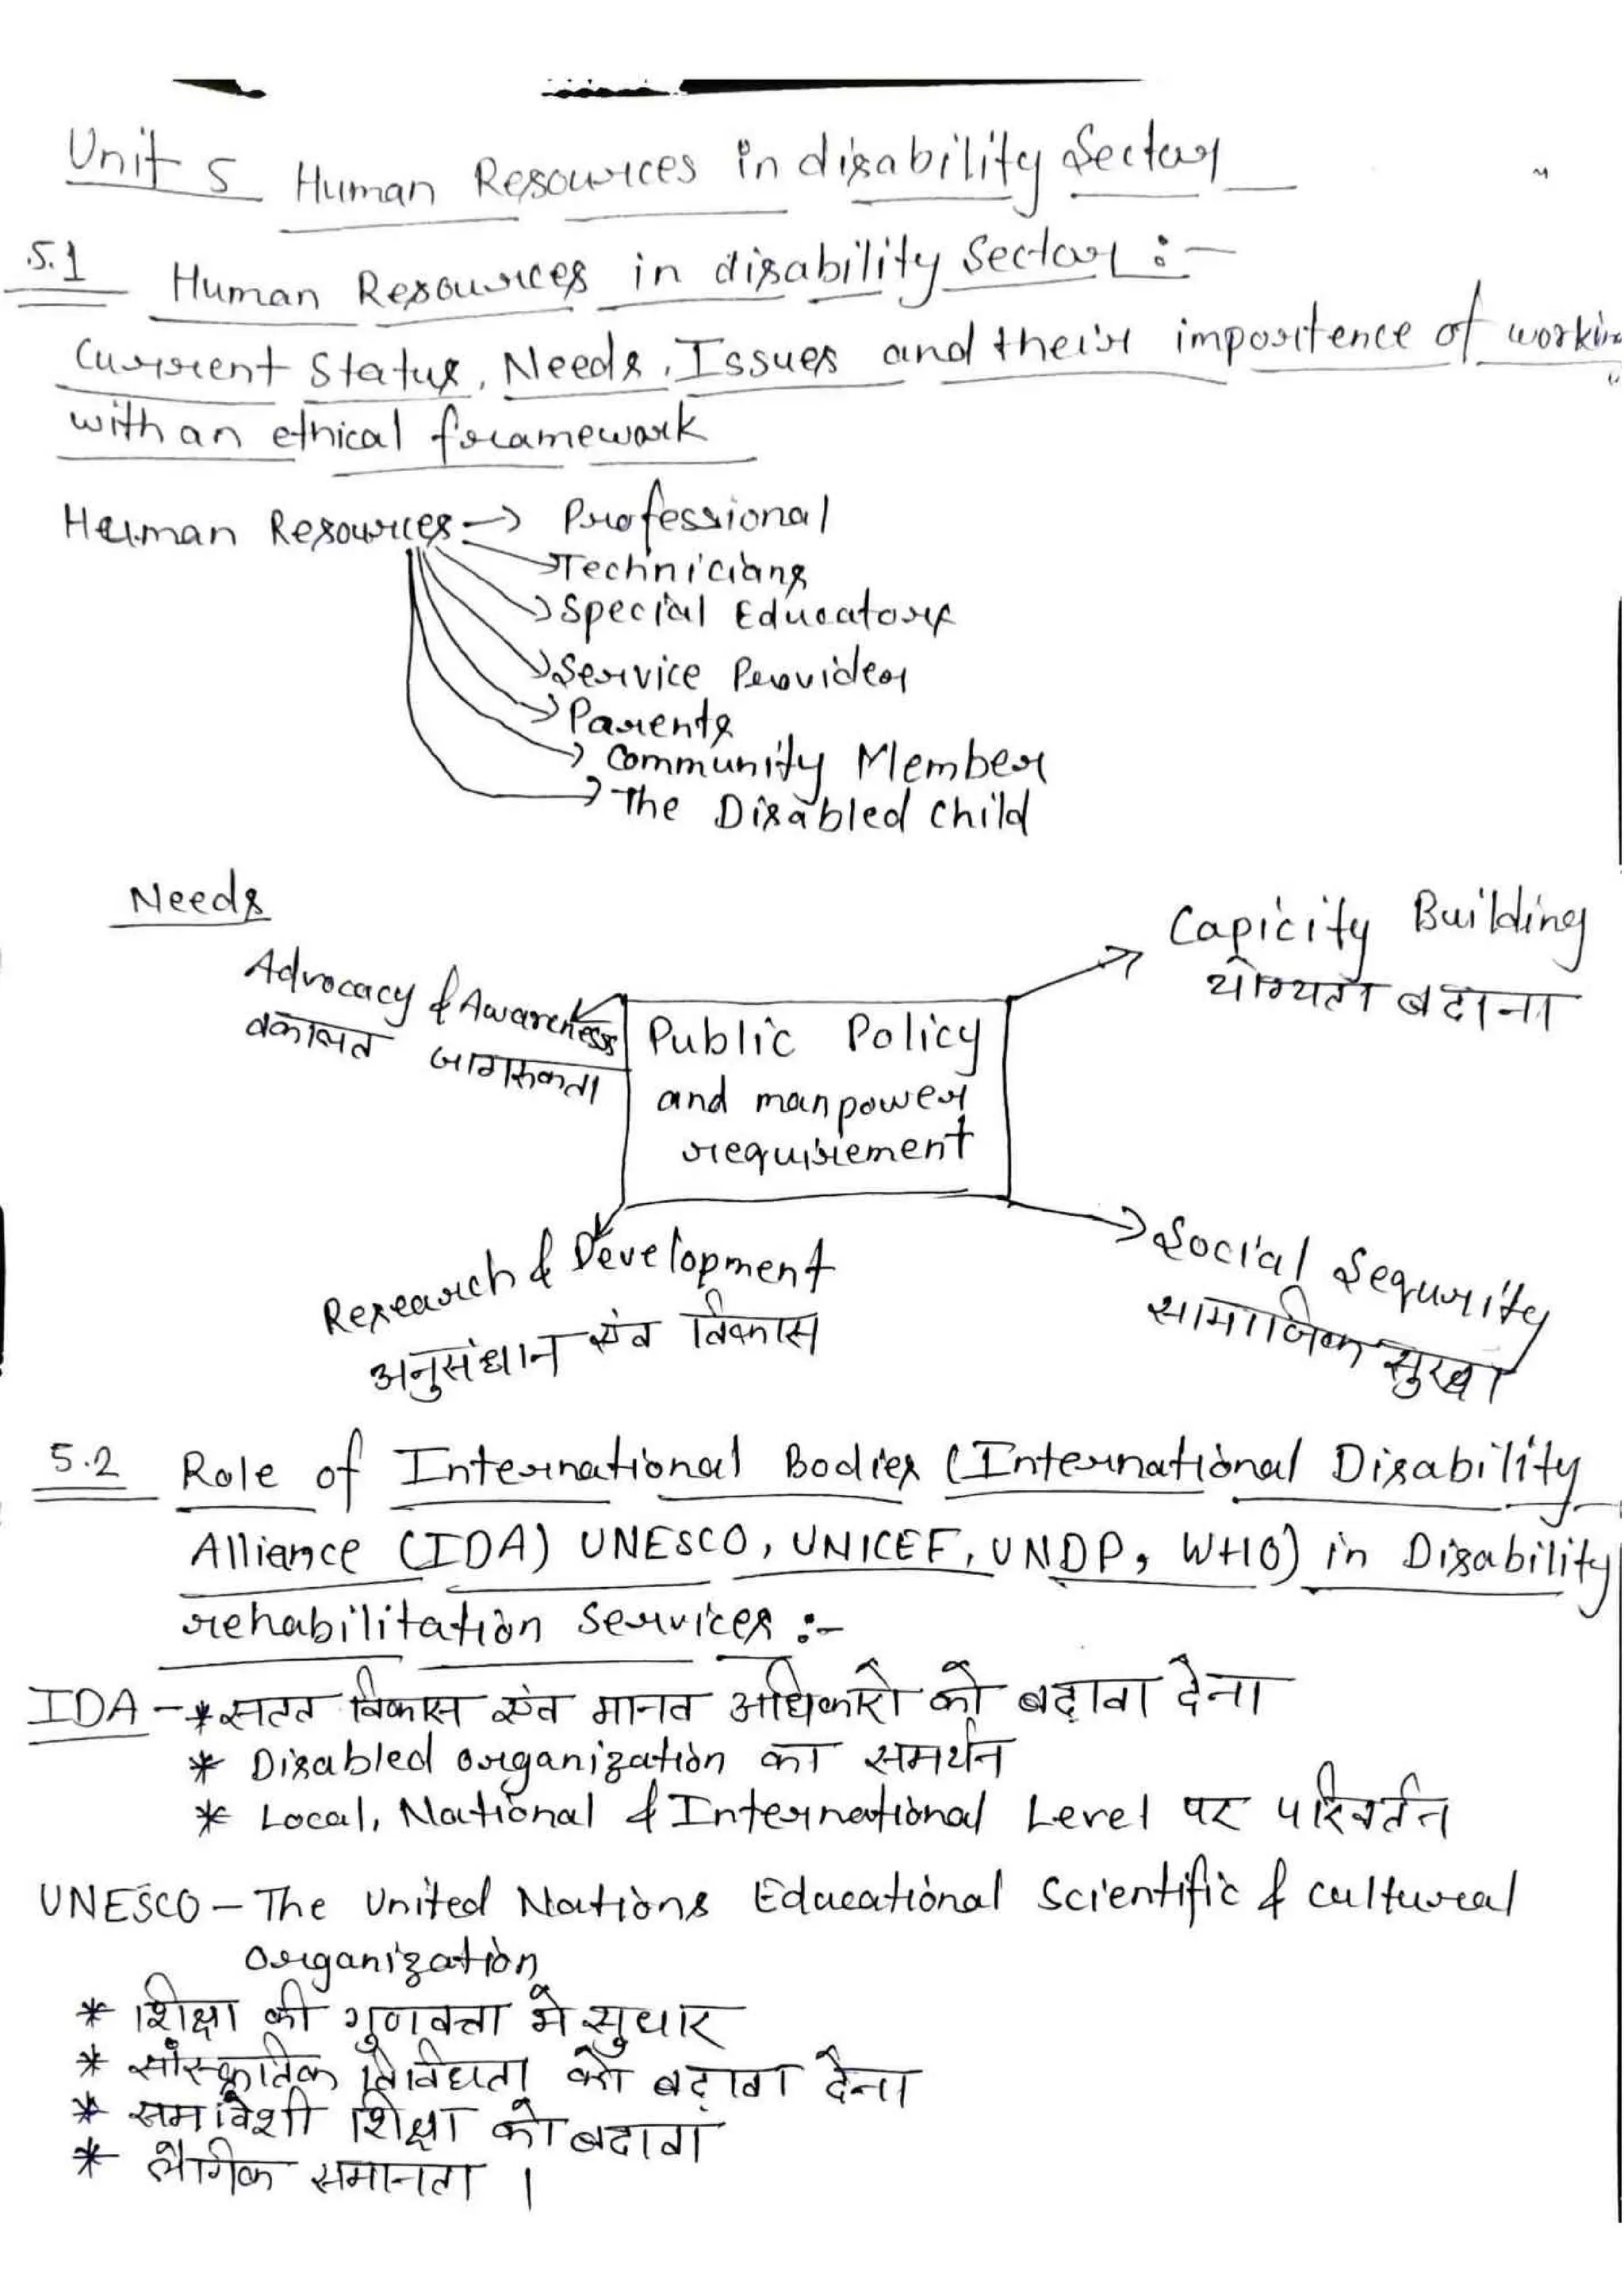 Unit 5 Human Resources in disability Sector
5.1 Human Resources in disability Sector :-
Current Status, Needs, Issues and their importence of workin
with an ethical framework
Human Resources → Professional
→ Technicians
→ Special Educators
→ Service Provider
→ Parents
→ Community Member
→ The Disabled child
Needs
Capicity Building
योग्यता बढाना
Advocacy & Awareness
वकालत जागरुकता
Public Policy
and manpower
requirement
Research & Development
अनुसंधान एंव विकास
Social Sequrity
सामाजिक सुरक्षा
5.2 Role of International Bodies (International Disability
Alliance (IDA) UNESCO, UNICEF, UNDP, WHO) in Disability
rehabilitation Services :-
IDA - * सतत विकास एंव मानव अधिकारो को बढ़ावा देना
* Disabled organization का समर्थन
* Local, National & International Level पर परिवर्तन
UNESCO - The United Nations Educational Scientific & cultural
organization
* शिक्षा की गुणवत्ता मे सुधार
* सांस्कृतिक विविधता को बढ़ावा देना
* समावेशी शिक्षा को बढावा
* लैंगिक समानता ।